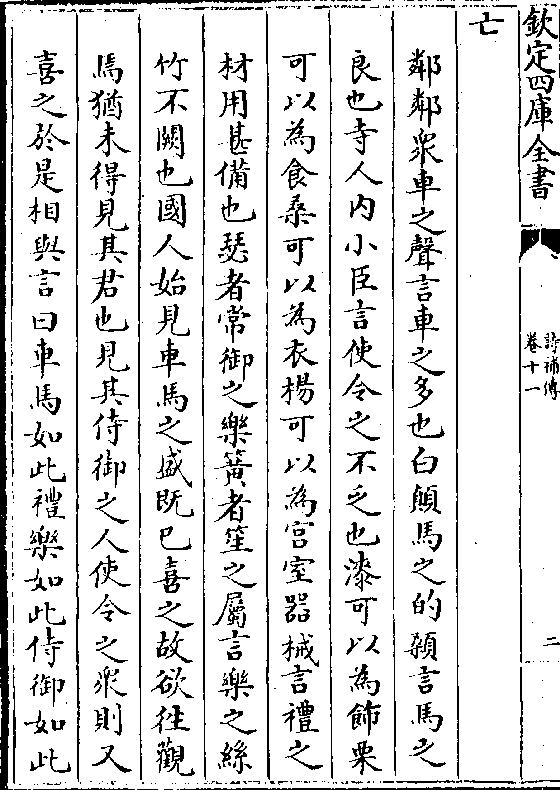 欽定四庫全書
詩補傳
卷十一
二
亡
鄰鄰衆車之聲言車之多也白顛馬之的顙言馬之
良也寺人内小臣言使令之不乏也漆可以為飾栗
可以為食桑可以為衣楊可以為宮室器械言禮之
材用甚備也瑟者常御之樂簧者笙之屬言樂之絲
竹不闕也國人始見車馬之盛既已喜之故欲徃觀
焉猶未得見其君也見其侍御之人使令之衆則又
喜之於是相與言曰車馬如此禮樂如此侍御如此